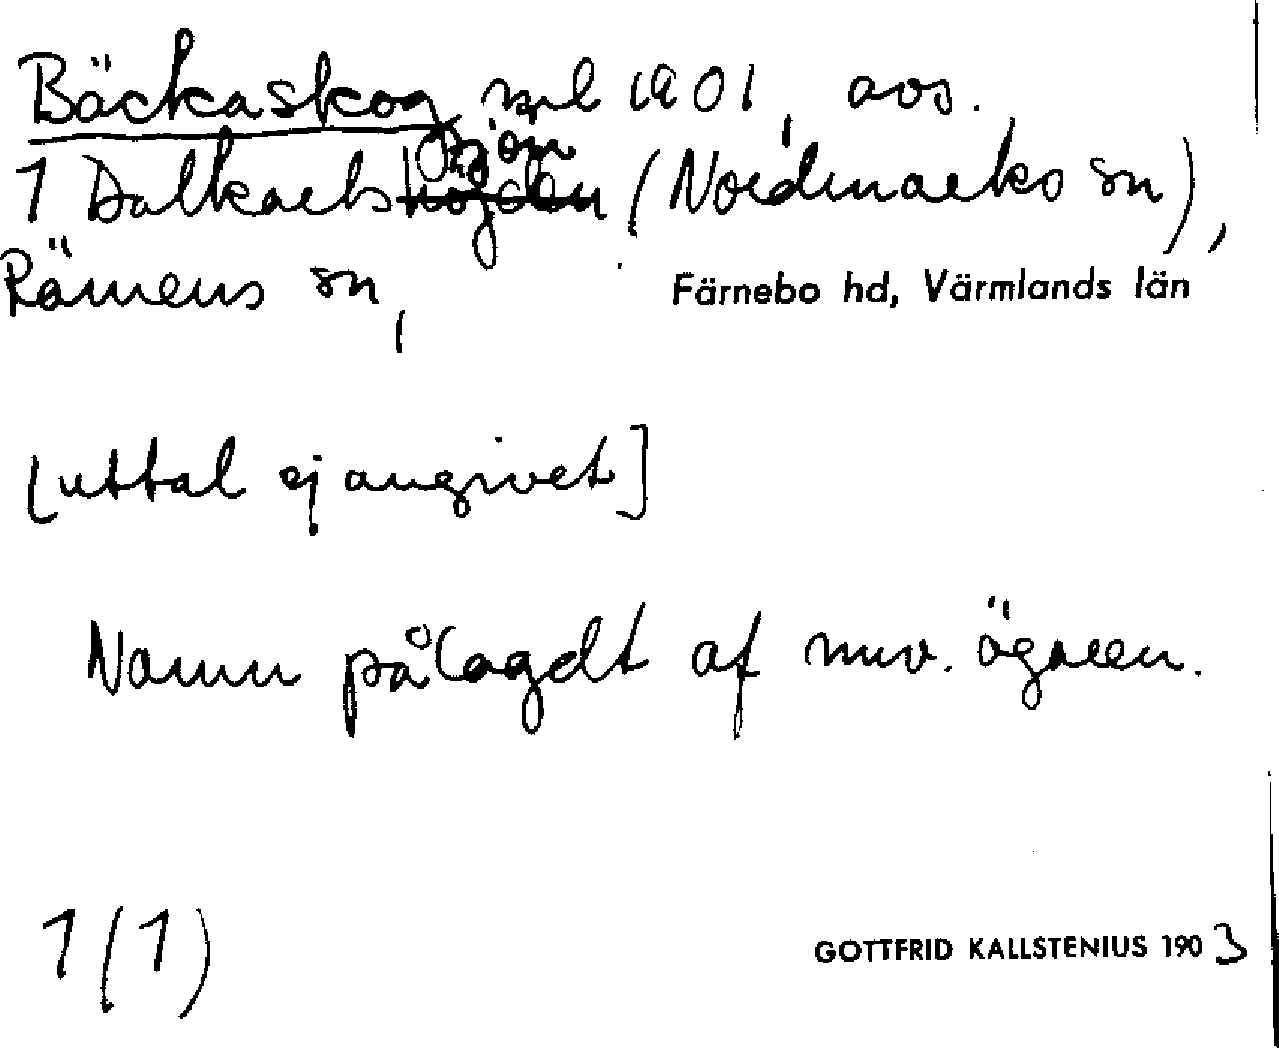 Bäckaskog, npl 1901, avs.
sjön
1 Dalkarls högden (Nordmarks sn),
Rämens sn, Färnebo hd, Värmlands län
[uttal ej angivet]
Namn pålagdt af nuv. ägaren.
1(1) GOTTFRID KALLSTENIUS 1903